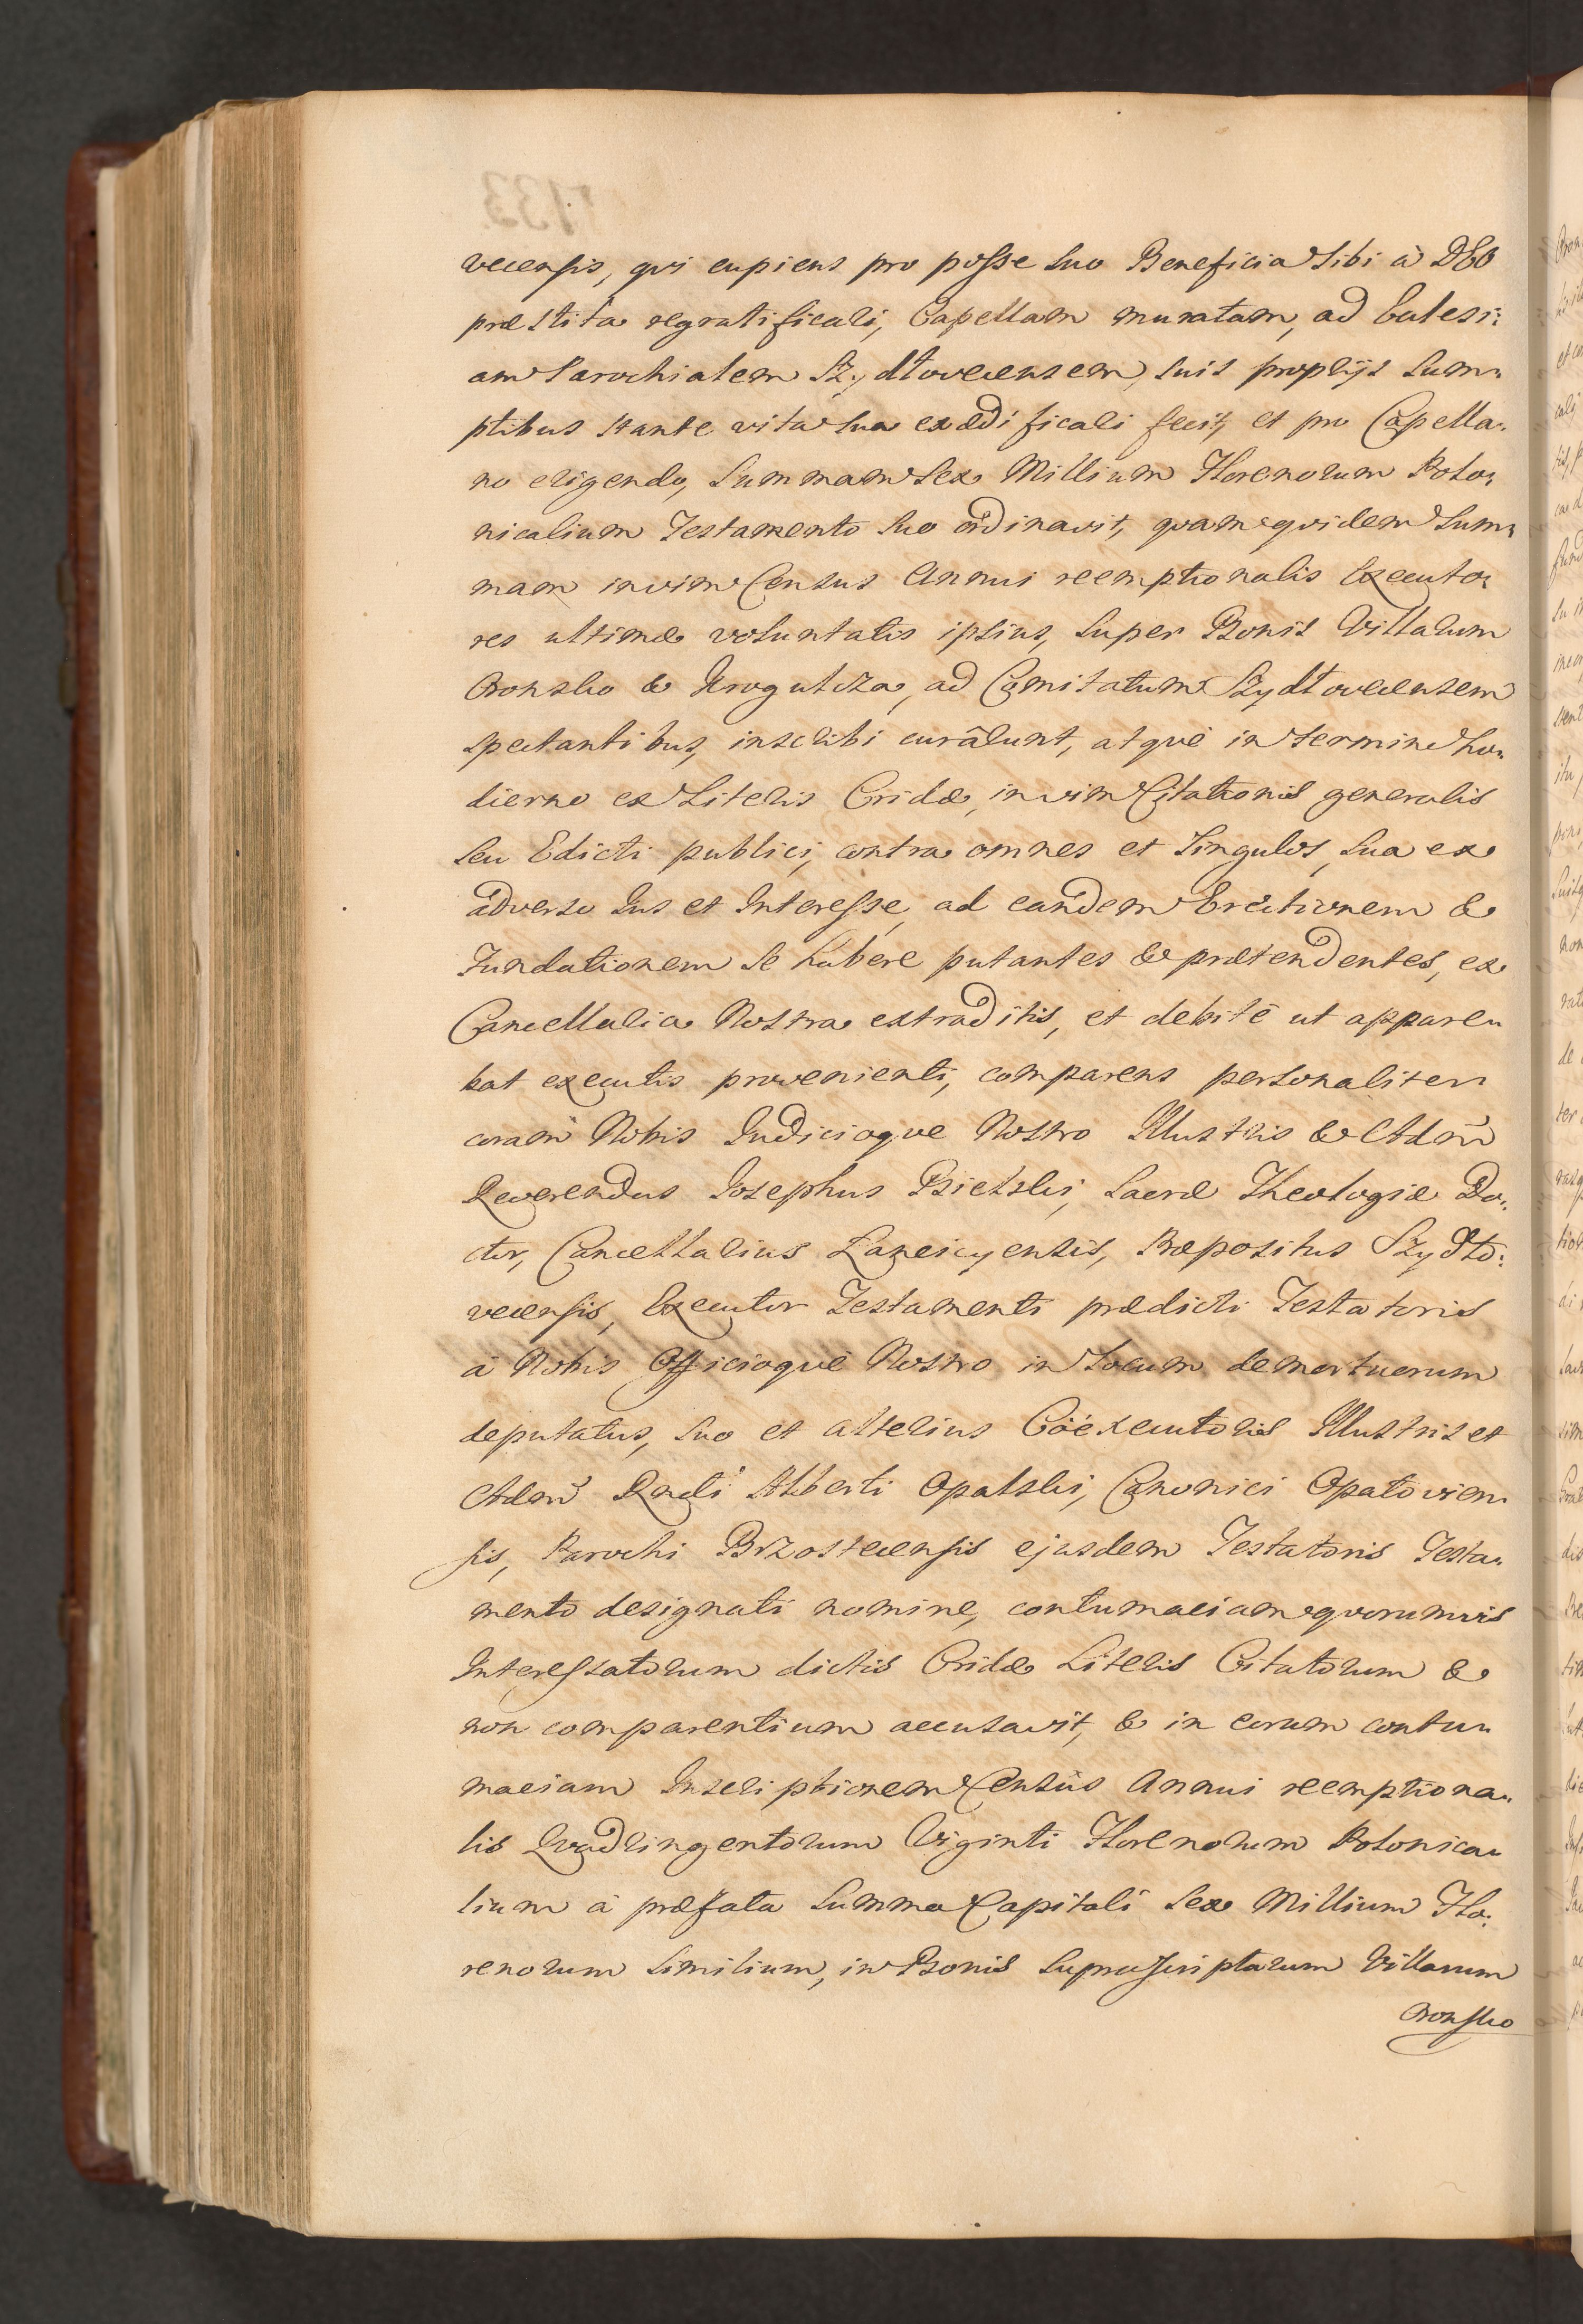 vecensis, qvi cupiens pro posse suo Beneficia sibi à DEO
præstita regratificari, Capellam muratam, ad Eclesi:
am Parochialem Szydłovecensem, suis proprijs Sum:
ptibus stante vita sua exædificari fecit, et pro Capella:
no erigendo, Summam Sex Millium Florenorum Polo:
nicalium Testamento suo ordinavit, qvam qvidem Sum:
mam in vim Census Annui reemptionalis Executo:
res ultimæ voluntatis ipsius, super Bonis Villarum
Oronsko & Krogulcza, ad Comitatum Szydłovecensem
spectantibus, inscribi curârunt, atqvè in termino ho:
dierno ex Literis Cridæ, in vim Citationis generalis
seu Edicti publici, contra omnes et Singulos, sua ex
adverso Jus et Interesse, ad eandem Erectionem &
Fundationem se habere putantes & prætendentes, ex
Cancellaria Nostra extraditis, et debitè ut appare:
bat executis provenienti, comparens personaliter
coram Nobis Judicioqve Nostro Illustris & Adm̃
Reverendus Josephus Bielski, Sacræ Theologiæ Do:
ctor, Cancellarius Lanciciensis, Præpositus Szydło:
vecensis, Executor Testamenti prædicti Testatoris
à Nobis Officioqvè Nostro in Locum demortuorum
deputatus, suo et alterius Cöexecutoris Illustris et
Adm̃ Rndi Alberti Opalski, Canonici Opatovien:
sis, Parochi Brzostecensis ejusdem Testatoris Testa:
mento designati nomine, contumaciam qvorumvis
Interessatorum dictis Cridæ Literis Citatorum &
non comparentium accusavit, & in eorum contu:
maciam Inscriptionem Censûs Annui reemptiona:
lis Qvadringentorum Viginti Florenorum Polonica:
lium à præfata Summa Capitali Sex Millium Flo:
renorum Similium, in Bonis Suprascriptarum Villarum
Oronsko